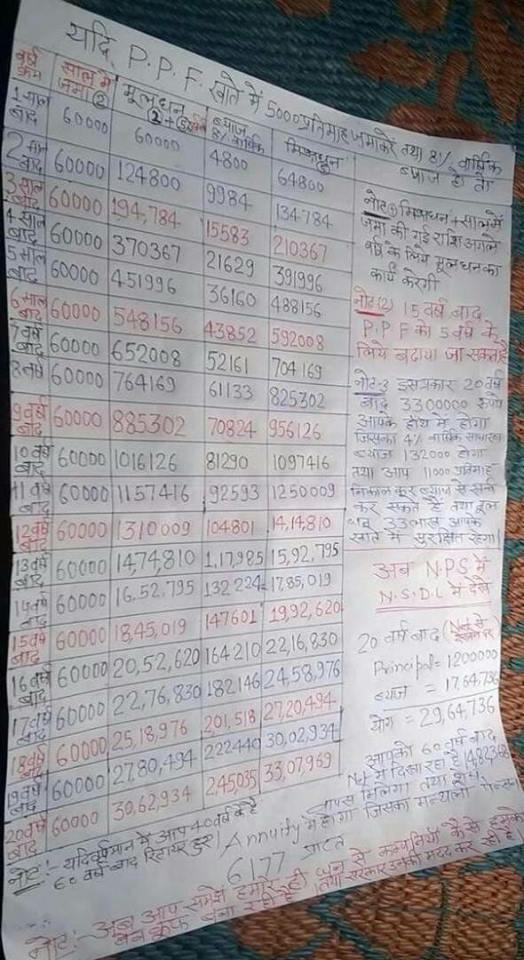 यदि P.P.F. खाते में 5000 प्रतिमाह जमा करें तथा 8% वार्षिक
ब्याज हो तो
वर्ष क्रम साल में जमा② मूलधन ②+ ब्याज 8% वार्षिक मिश्रधन
1 साल बाद 60000 60000 4800 64800
2 साल बाद 60000 124800 9984 134784
3 साल बाद 60000 194,784 15583 210367
4 साल बाद 60000 370367 21629 391996
5 साल बाद 60000 451996 36160 488156
6 साल बाद 60000 548156 43852 592008
7 वर्ष बाद 60000 652008 52161 704169
8 वर्ष 60000 764169 61133 825302
9 वर्ष बाद 60000 885302 70824 956126
10 वर्ष बाद 60000 1016126 81290 1097416
11 वर्ष बाद 60000 1157416 92593 1250009
12 वर्ष बाद 60000 1310009 104801 14,14,810
13 वर्ष बाद 60000 14,74,810 1,17,985 15,92,795
14 वर्ष बाद 60000 16,52,795 132224 17,85,019
15 वर्ष बाद 60000 18,45,019 147601 19,92,620
16 वर्ष बाद 60000 20,52,620 164210 22,16,830
17 वर्ष बाद 60000 22,76,830 182146 24,58,976
18 वर्ष बाद 60000 25,18,976 201,518 27,20,494
19 वर्ष बाद 60000 27,80,494 222440 30,02,934
20 वर्ष बाद 60000 30,62,934 245,035 33,07,969
नोट① मिश्रधन + साल में
जमा की गई राशि अगले
वर्ष के लिये मूलधन का
कार्य करेगी
नोट(2) 15 वर्ष बाद
P.P.F का 5 वर्ष के
लिये बढाया जा सकता है
नोट-3 इस प्रकार 20 वर्ष
बाद 3300000 रुपये
आपके हाथ में होगा
जिसका 4% वार्षिक साधारण
ब्याज 132000 होगा
तथा आप 11000 प्रतिमाह
निकाल कर ब्याज से खर्च
कर सकते हैं तथा मूल
धन 33 लाख आपके
खाते में सुरक्षित रहेगा।
अब N.P.S में
N.S.D.L में देखें
20 वर्ष बाद (Net से
Principal = 1200000
ब्याज = 17,64,736
योग = 29,64,736
आपको 60 वर्ष बाद
Net में दिखा रहा है 1482368
वापस मिलेगा तथा शेष
Annuity में होगा जिसका मन्थली पेन्शन
6177 प्राप्त
नोट:- यदि वर्तमान में आप 40 वर्ष के हैं
60 वर्ष बाद रिटायर हुए।
नोट:- अब आप समझें हमारे ही धन से कम्पनियाँ कैसे हमको
बेवकूफ बना रही हैं। तथा सरकार उनकी मदद कर रही है।